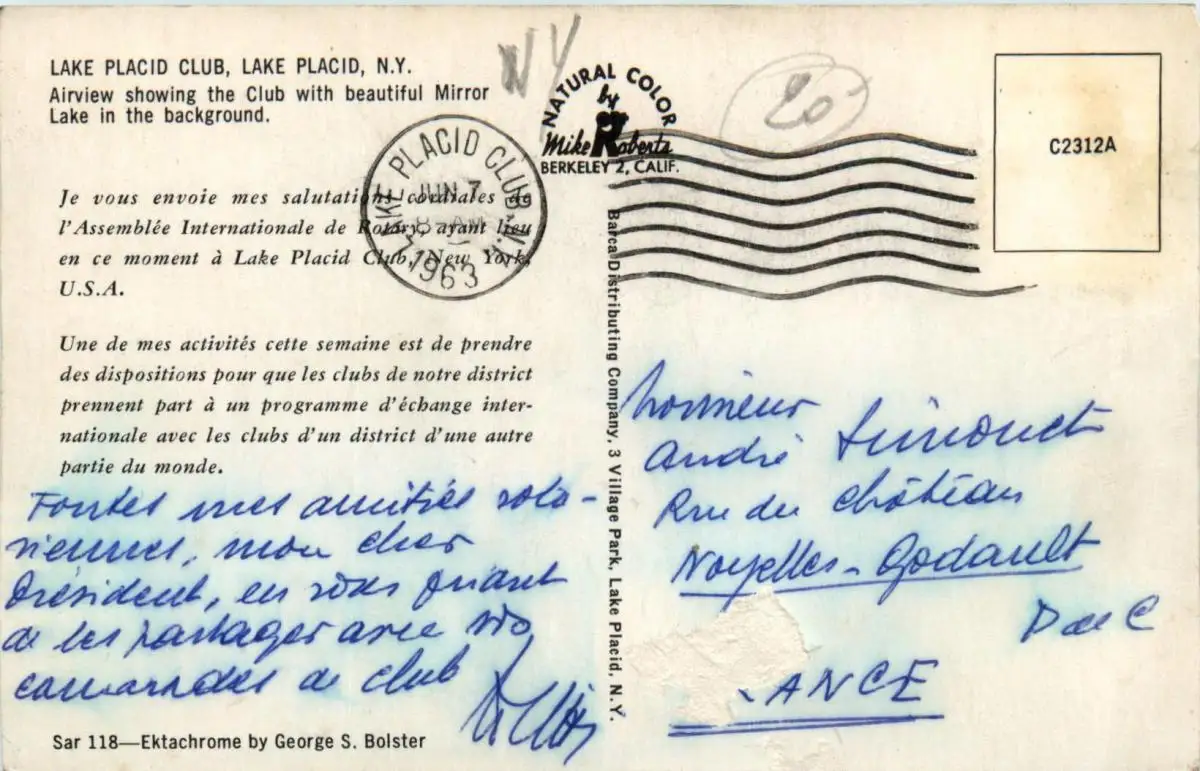 LAKE PLACID CLUB, LAKE PLACID, N.Y.
Airview showing the Club with beautiful Mirror
Lake in the background.
NY
NATURAL COLOR
by
Mike Roberts
BERKELEY 2, CALIF.
20
C2312A
LAKE PLACID CLUB, N.Y.
JUN 7
8-AM
1963
Je vous envoie mes salutations cordiales de
l'Assemblée Internationale de Rotary, ayant lieu
en ce moment à Lake Placid Club, New York,
U.S.A.
Une de mes activités cette semaine est de prendre
des dispositions pour que les clubs de notre district
prennent part à un programme d'échange inter-
nationale avec les clubs d'un district d'une autre
partie du monde.
Toutes mes amitiés rota-
riennes, mon cher
Président, en vous priant
de les partager avec vos
camarades de club
Barca Distributing Company, 3 Village Park, Lake Placid, N.Y.
Monsieur
André Simonet
Rue du château
Noyelles-Godault
P de C
ANCE
Sar 118—Ektachrome by George S. Bolster